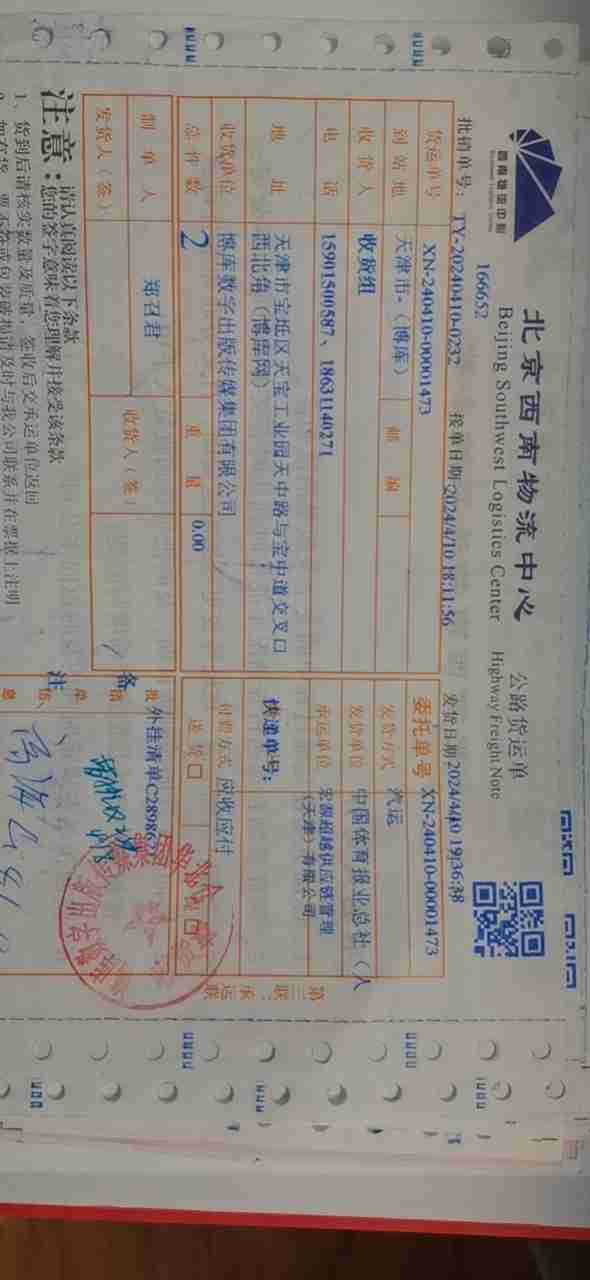 西南物流中心
北京西南物流中心
公路货运单
Beijing Southwest Logistics Center
Highway Freight Note
166652
批销单号: TY-20240410-0232
接单日期:2024/4/10 18:11:56
发货日期 2024/4/10 19:36:38
货运单号 XN-240410-00001473
委托单号 XN-240410-00001473
到站地 天津市-(博库) 邮编
发货方式 汽运
收货人 收货组
发货单位 中国体育报业总社(人
电话 15901500587、18631140271
承运单位 宏源超越供应链管理
(天津)有限公司
地址 天津市宝坻区天宝工业园天中路与宝中道交叉口
西北角(博库网)
快递单号:
收货单位 博库数字出版传媒集团有限公司
付费方式 应收应付
总件数 2 重量 0.00
送货□
制单人 郑召君 收货人(签)
发货人(签)
备注
外挂清单C289862
第三联:承运联
注意:
请认真阅读以下条款
您的签字意味着您理解并接受该条款
1、货到后请核实数量及质量,签收后交承运单位返回